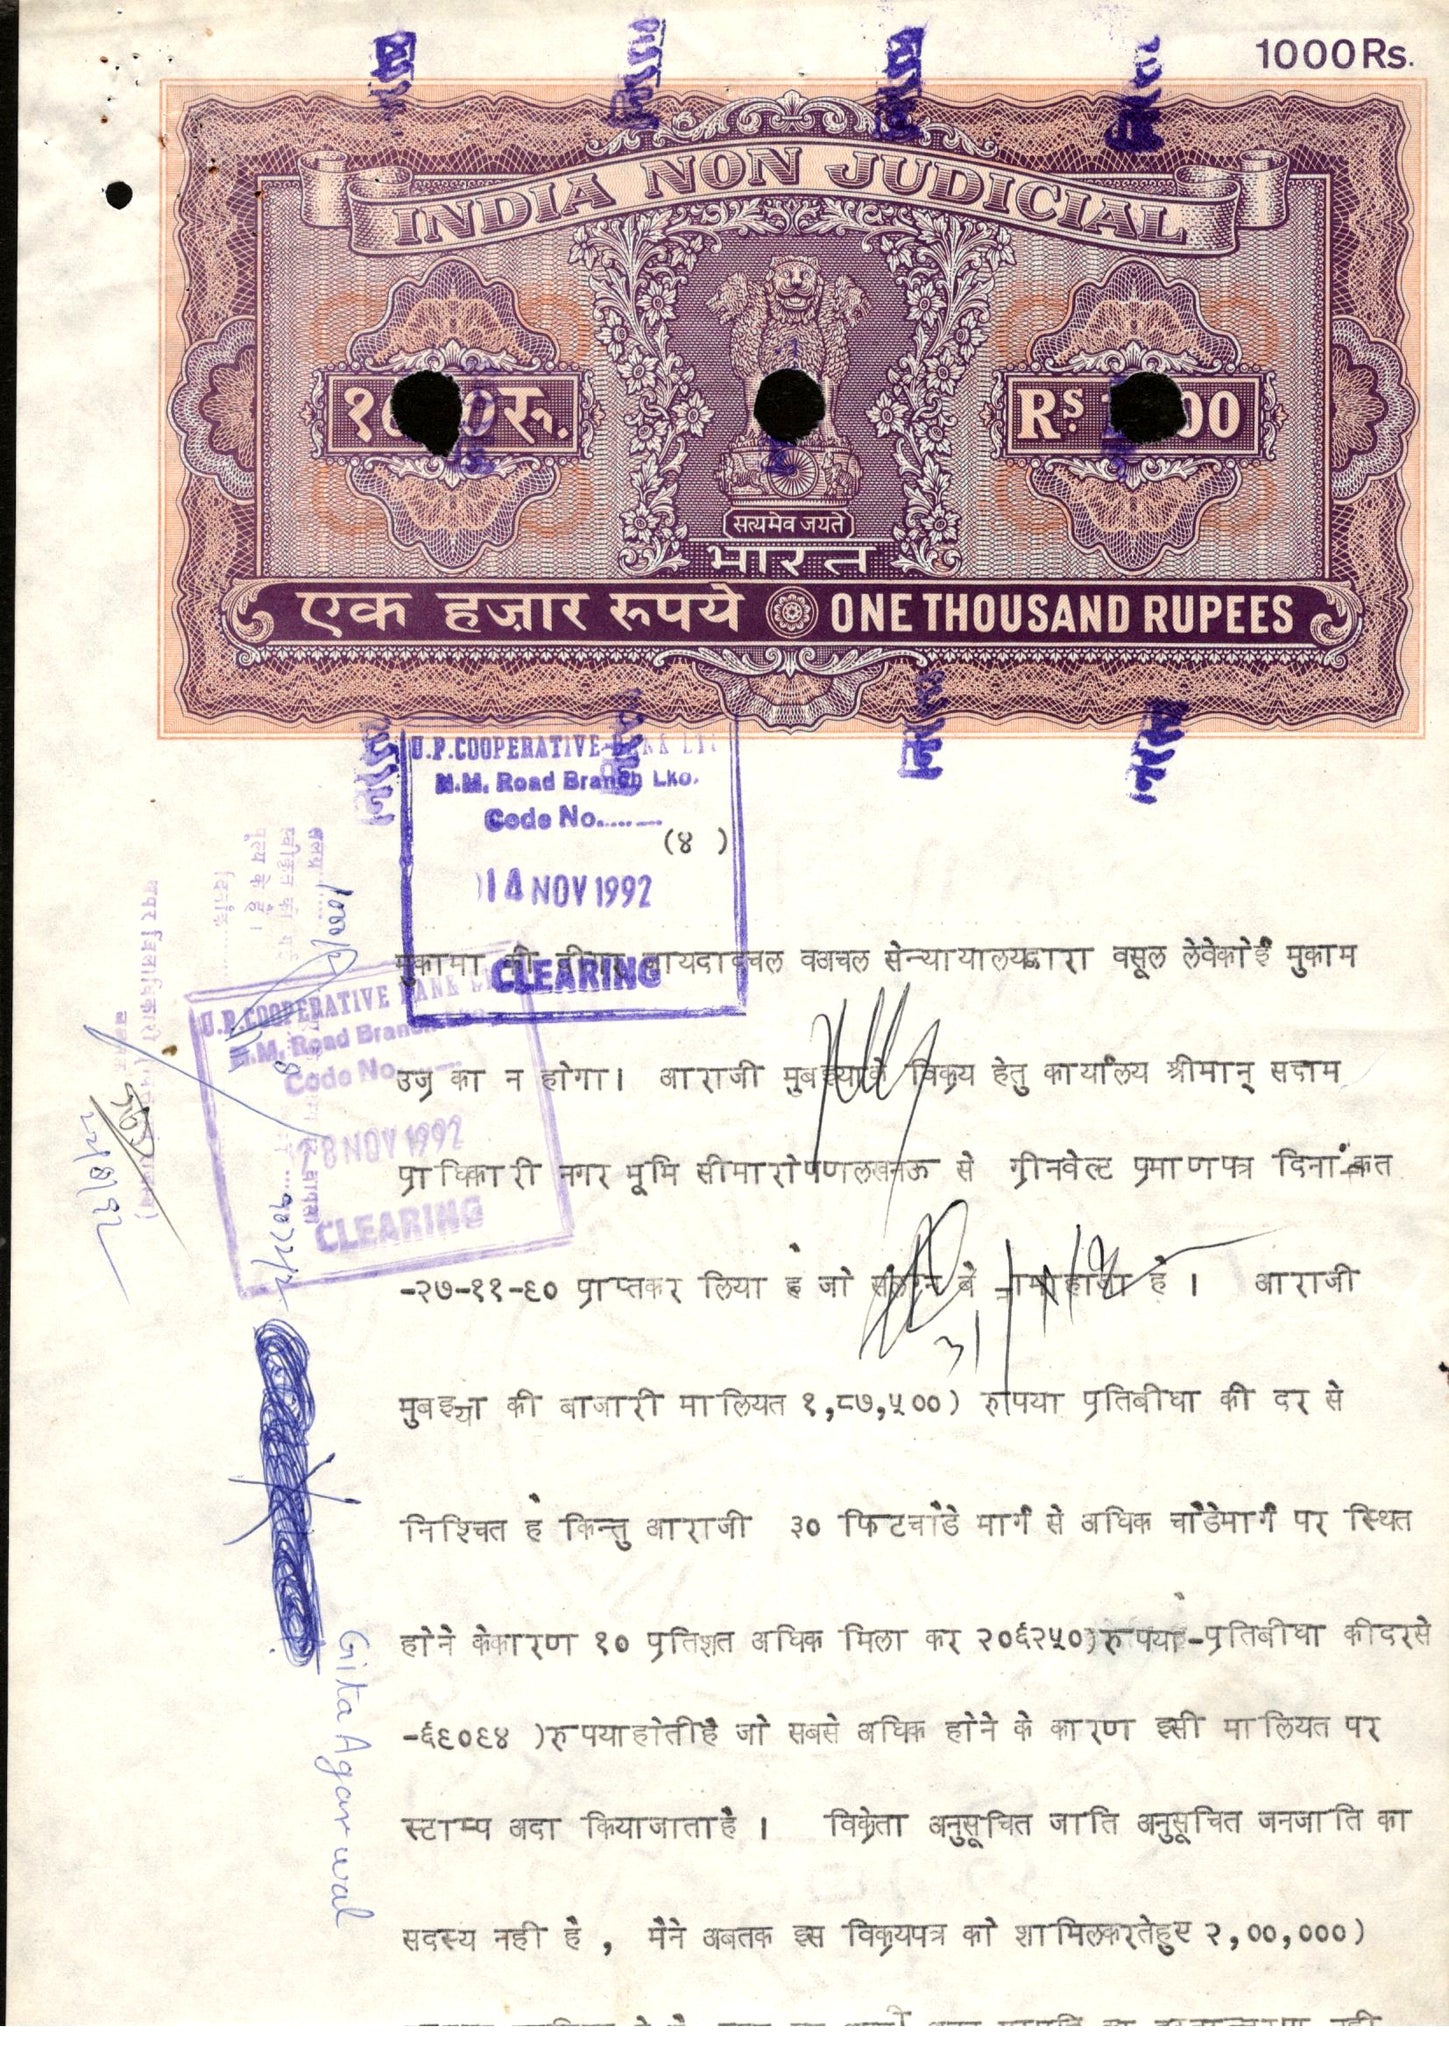 1000Rs.
INDIA NON JUDICIAL
रु.
Rs
सत्यमेव जयते
भारत
एक हज़ार रुपये ONE THOUSAND RUPEES
U.P.COOPERATIVE BANK LTD
M.M. Road Branch Lko.
Code No.........
(४ )
14 NOV 1992
CLEARING
U.P.COOPERATIVE BANK
M.M. Road Branch
Code No.
18 NOV 1992
CLEARING
मुकामा की जायदादचल वअचल सेन्यायालयद्वारा वसूल लेवेकोई मुकाम
उज्र का न होगा। आराजी मुबइयाके विक्रय हेतु कार्यालय श्रीमान् सदाम
प्राधिकारी नगर भूमि सीमारोपणलखनऊ से ग्रीनवेल्ट प्रमाणपत्र दिनांकित
-२७-११-९० प्राप्तकर लिया है जो संलग्न बैनामाहाजा है । आराजी
मुबइया की बाजारी मालियत १,८७,५००) रुपया प्रतिबीघा की दर से
निश्चित है किन्तु आराजी ३० फिटचौडे मार्ग से अधिक चौडेमार्ग पर स्थित
होने केकारण १० प्रतिशत अधिक मिला कर २०६२५०)रुपया-प्रतिबीघा कीदरसे
-६९०९४ )रुपयाहोतीहै जो सबसे अधिक होने के कारण इसी मालियत पर
स्टाम्प अदा कियाजाताहै । विक्रेता अनुसूचित जाति अनुसूचित जनजाति का
सदस्य नही है , मैने अबतक इस विक्रयपत्र को शामिलकरतेहुए २,००,०००)
Gita Agarwal